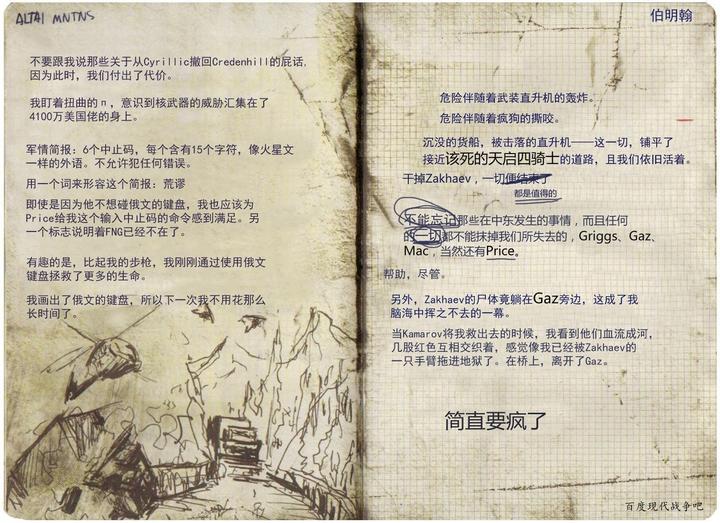 ALTAI MNTNS
不要跟我说那些关于从Cyrillic撤回Credenhill的屁话，
因为此时，我们付出了代价。
我盯着扭曲的п，意识到核武器的威胁汇集在了
4100万美国佬的身上。
军情简报：6个中止码，每个含有15个字符，像火星文
一样的外语。不允许犯任何错误。
用一个词来形容这个简报：荒谬
即使是因为他不想碰俄文的键盘，我也应该为
Price给我这个输入中止码的命令感到满足。另
一个标志说明着FNG已经不在了。
有趣的是，比起我的步枪，我刚刚通过使用俄文
键盘拯救了更多的生命。
我画出了俄文的键盘，所以下一次我不用花那么
长时间了。
伯明翰
危险伴随着武装直升机的轰炸。
危险伴随着疯狗的撕咬。
沉没的货船，被击落的直升机——这一切，铺平了
接近该死的天启四骑士的道路，且我们依旧活着。
干掉Zakhaev，一切便结束了
都是值得的
不能忘记那些在中东发生的事情，而且任何
的一切都不能抹掉我们所失去的，Griggs、Gaz、
Mac，当然还有Price。
帮助，尽管。
另外，Zakhaev的尸体竟躺在Gaz旁边，这成了我
脑海中挥之不去的一幕。
当Kamarov将我救出去的时候，我看到他们血流成河，
几股红色互相交织着，感觉像我已经被Zakhaev的
一只手臂拖进地狱了。在桥上，离开了Gaz。
简直要疯了
百度现代战争吧